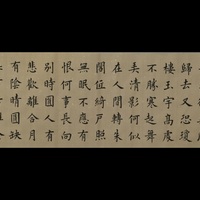 歸去又恐瓊
樓玉宇高處
不勝寒起舞
弄清影何似
在人間轉朱
閣低綺戶照
無眠不應有
恨何事長向
別時圓人有
悲歡離合月
有陰晴圓缺